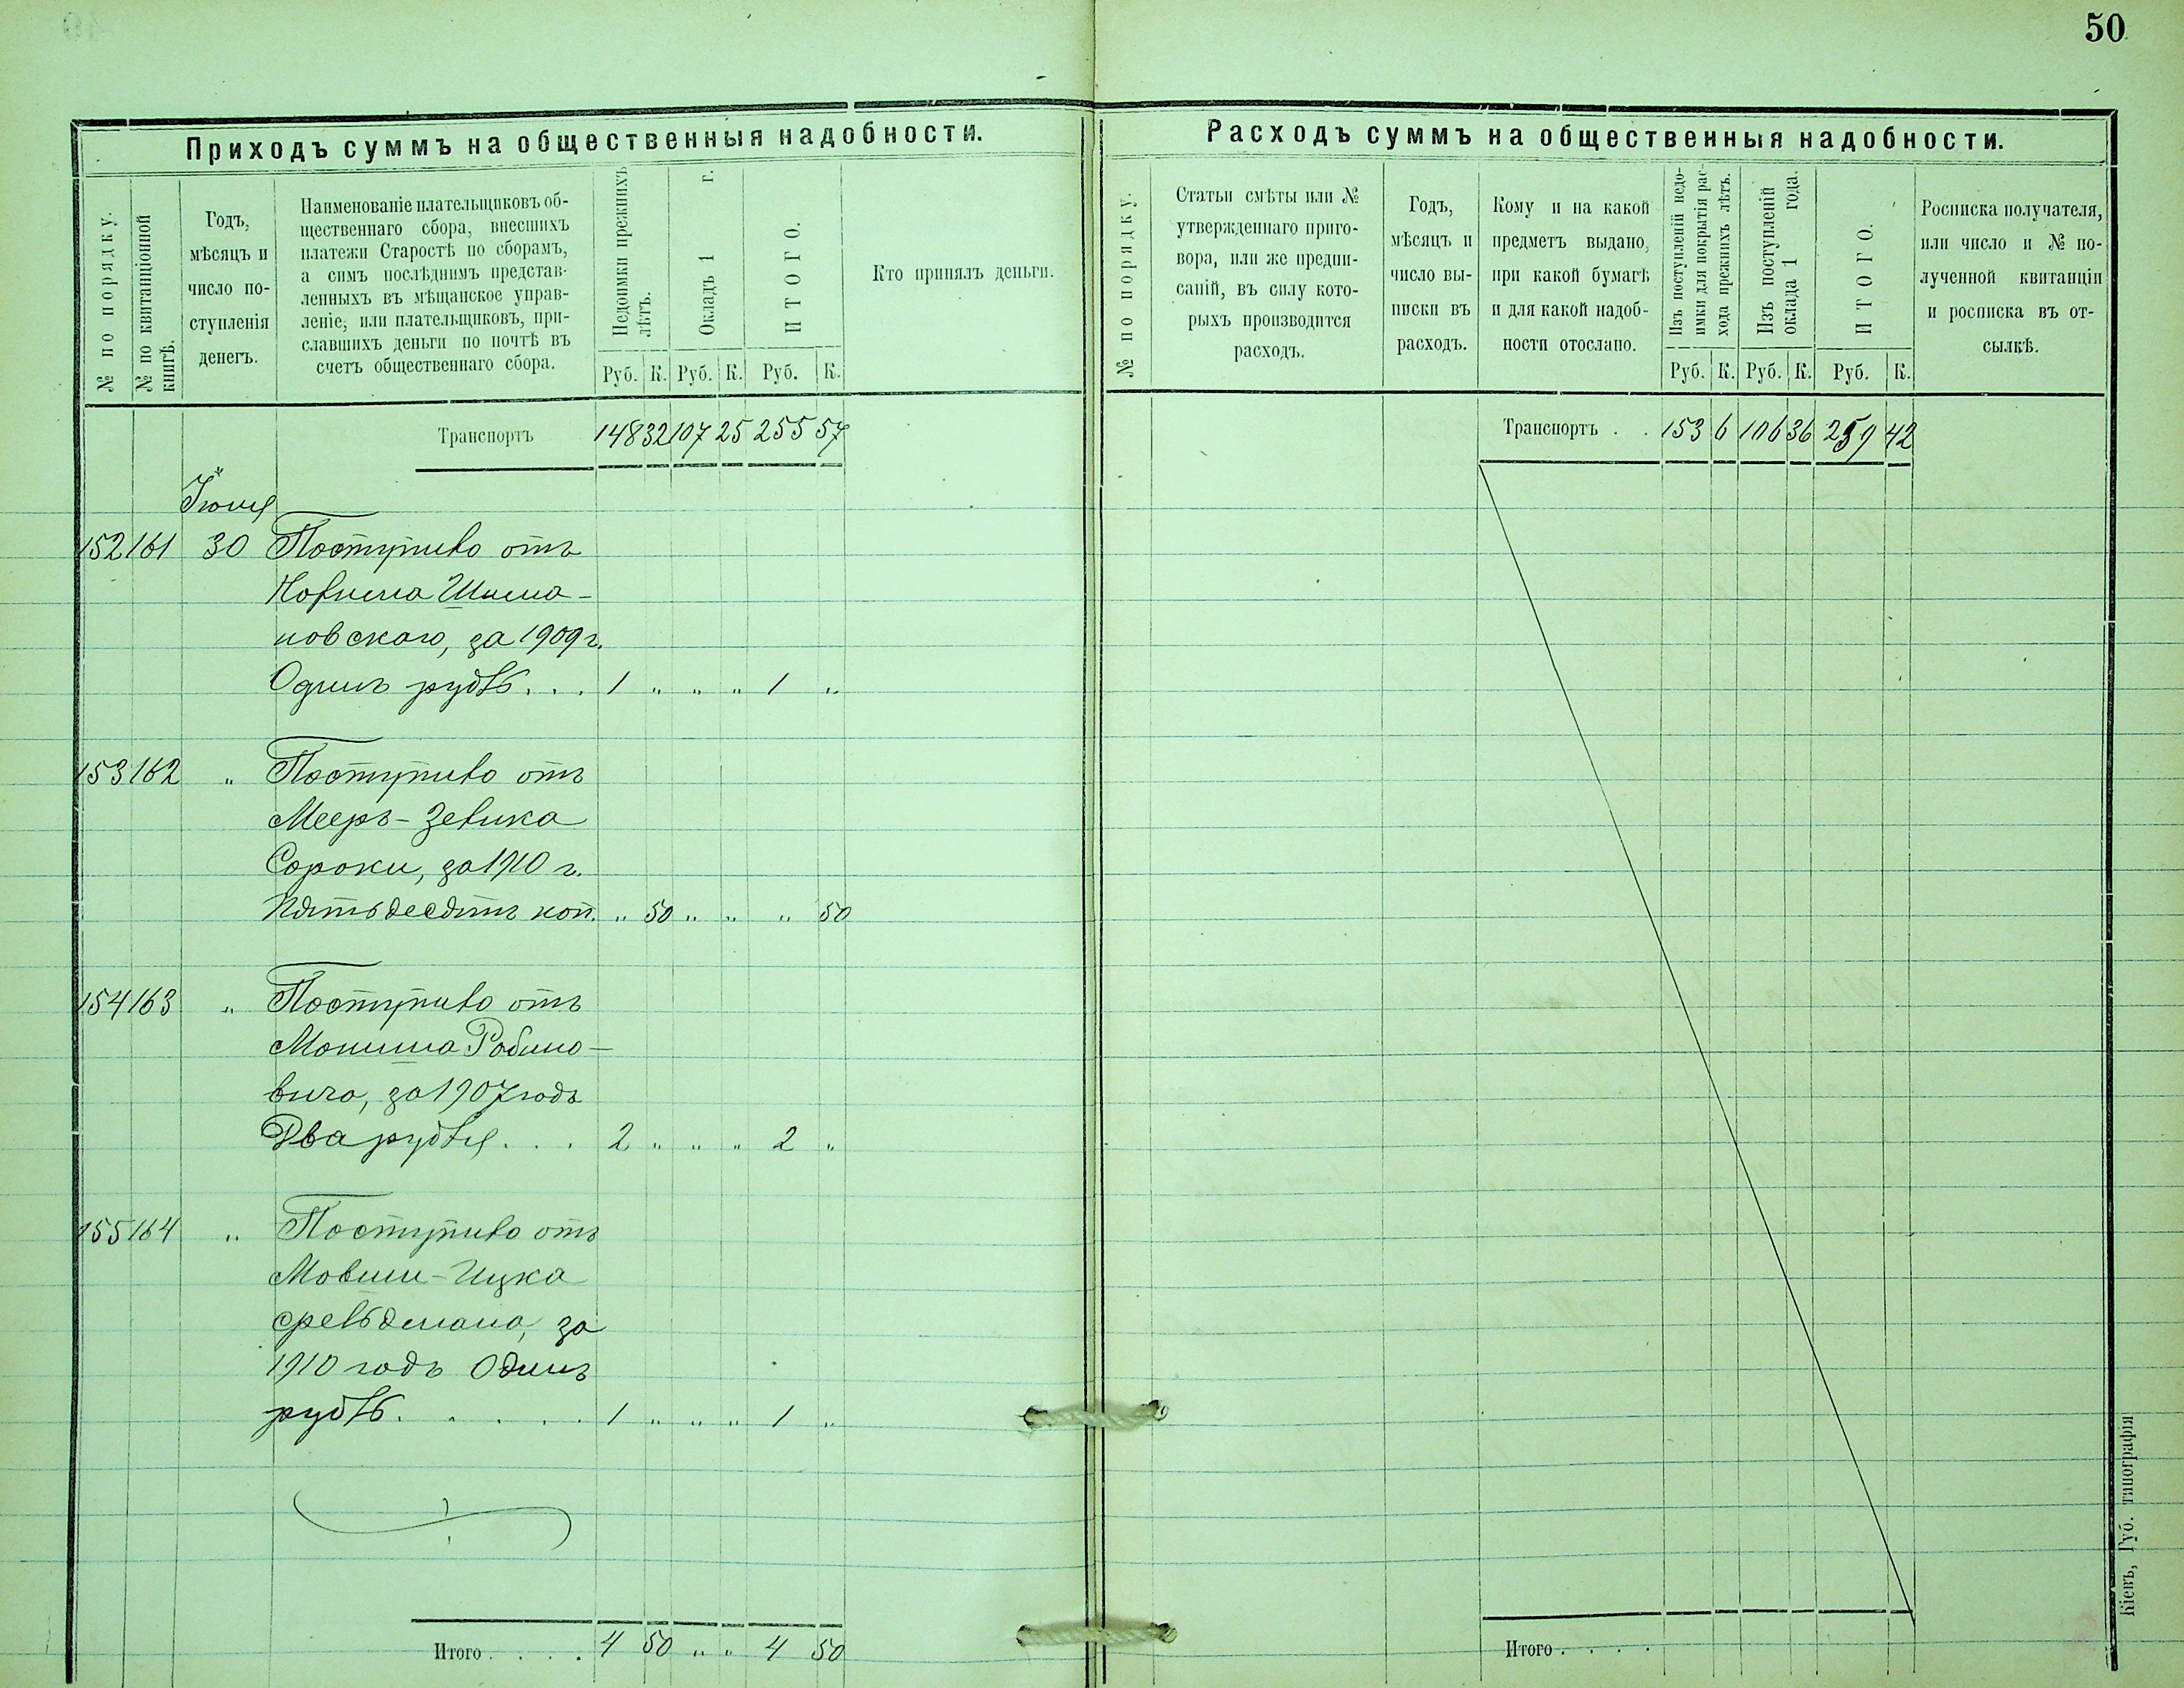 50
Приходъ суммъ на общественныя надобности.
№ по порядку.
№ по квитанціонной
книгѣ.
Годъ,
мѣсяцъ и
число по-
ступленія
денегъ.
Наименованіе плательщиковъ об-
щественнаго сбора, внесшихъ
платежи Старостѣ по сборамъ,
а симъ послѣднимъ представ-
ленныхъ въ мѣщанское управ-
леніе, или плательщиковъ, при-
славшихъ деньги по почтѣ въ
счетъ общественнаго сбора.
Недоимки прежнихъ
лѣтъ.
Окладъ 1 г.
ИТОГО.
Руб. К. Руб. К. Руб. К.
Кто принялъ деньги.
Транспортъ 148 32 107 25 255 57
Іюня
152 161 30 Поступило отъ
Шима-
новскаго, за 1909 г.
Одинъ рубль... 1 " " " 1 "
153 162 " Поступило отъ
Мееръ-Зелика
Сороки, за 1910 г.
Пятьдесятъ коп. " 50 " " " 50
154 163 " Поступило отъ
Рабино-
вича, за 1907 годъ
Два рубля... 2 " " " 2 "
155 164 " Поступило отъ
Мовши-Ицка
за
1910 годъ Одинъ
рубль...... 1 " " " 1 "
Итого.... 4 50 " " 4 50
Расходъ суммъ на общественныя надобности.
№ по порядку.
Статьи смѣты или №
утвержденнаго приго-
вора, или же предпи-
саній, въ силу кото-
рыхъ производится
расходъ.
Годъ,
мѣсяцъ и
число вы-
писки въ
расходъ.
Кому и на какой
предметъ выдано,
при какой бумагѣ
и для какой надоб-
ности отослано.
Изъ поступленій недо-
имки для покрытія рас-
хода прежнихъ лѣтъ.
Изъ поступленій
оклада 1 года.
ИТОГО.
Руб. К. Руб. К. Руб. К.
Росписка получателя,
или число и № по-
лученной квитанціи
и росписка въ от-
сылкѣ.
Транспортъ . . 153 6 106 36 259 42
Итого....
Кіевъ, Губ. типографія